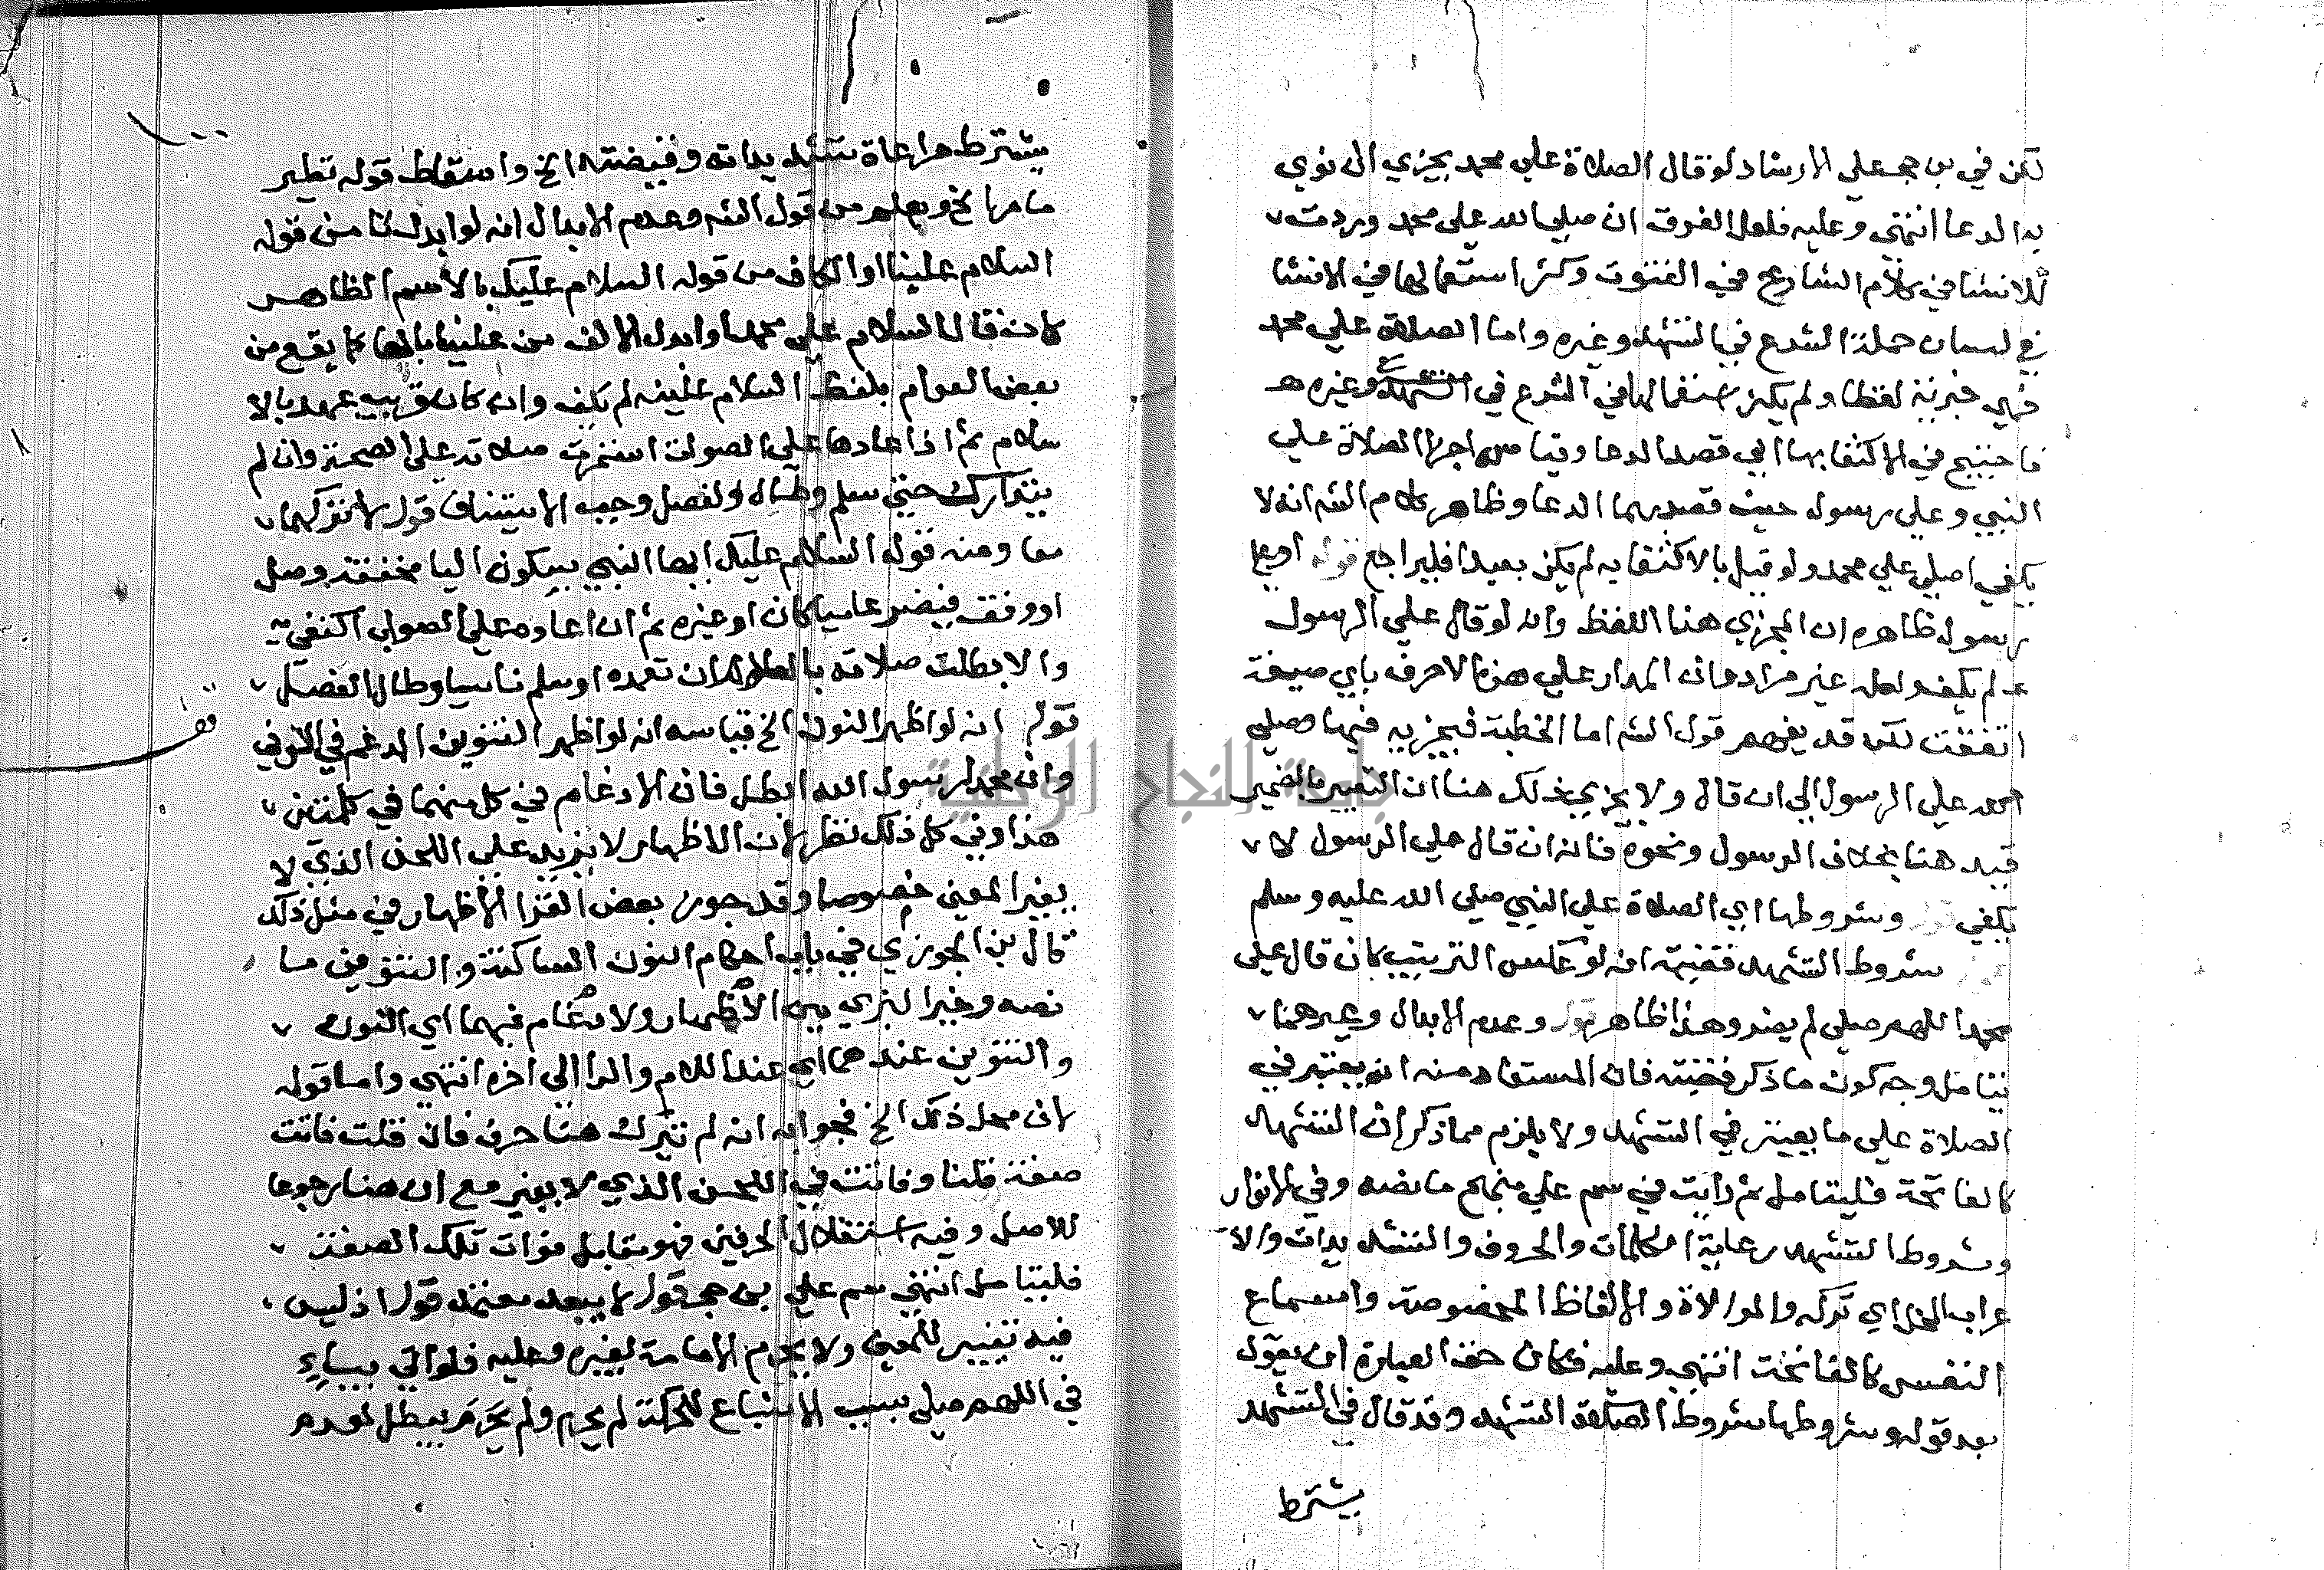 لكن في بن حجر علي الارشاد لو قال الصلاة علي محمد يجزي ان نوي
به الدعا انتهي وعليه فلعل الفرق ان صلي الله علي محمد وردت
للانشا في كلام الشارع في القنوت وكثر استعمالها في الانشا
في لسان حملة الشرع في التشهد وغيره واما الصلاة علي محمد
فهي خبرية لفظا ولم يكثر استعمالها في الشرع في التشهد وغيره
فاحتيج في الاكتفا بها الي قصد الدعا وقياس اجزا الصلاة علي
النبي وعلي رسوله حيث قصد بهما الدعا وظاهر كلام الشه انه لا
يكفي اصلي علي محمد ولو قيل بالاكتفا به لم يكن بعيدا فليراجع قوله او علي
رسوله ظاهره ان المجزي هنا اللفظ وانه لو قال علي الرسول
لم يكف ولعله غير مراد فان المدار علي هذه الاحرف باي صيغة
اتفقت لكن قد يفهم قول الشه اما الخطبة فيجزيه فيها وصلي
الله علي الرسول الي ان قال ولا يجزي ذلك هنا ان التعبير بالضمير
قيد هنا بخلاف الرسول ونحوه فانه ان قال علي الرسول لا
يكفي قوله وشروطها اي الصلاة علي النبي صلي الله عليه وسلم
شروط التشهد فقضيته انه لو عكس الترتيب كان قال علي
محمد اللهم صلي لم يضر وهذا ظاهر قوله وعدم الابدال وغيرهما
يتامل وجه كون ما ذكر قضيته فان المستفاد منه انه يعتبر في
الصلاة علي ما يعتبر في التشهد ولا يلزم مما ذكر ان التشهد
كالفاتحة فليتامل ثم رايت في سم علي منهج ما نصه وفي الانوار
وشروط التشهد رعاية الكلمات والحروف والتشديدات والا
عراب المخل اي تركه والموالاة والالفاظ المخصوصة واسماع
النفس كالفاتحة انتهي وعليه فكان حق العبارة ان يقول
بعد قوله وشروطها شروط الصلاة التشهد وقد قال في التشهد
يشترط
يشترط مراعاة تشديداته وقضيته الخ واسقاط قوله نظير
ما مر الخ ويعلم من قول الشه وعدم الابدال انه لو ابدل نا من قوله
السلام علينا او الكاف من قوله السلام عليك بالاسم الظاهر
كان قال السلام علي محمد او ابدل الالف من علينا بالها كما يقع من
بعض العوام بلفظ السلام علينه لم يكف وان كان قريب عهد بالا
سلام ثم اذا عادها علي الصواب استمرت صلاته علي الصحة وان لم
يتدارك حتي سلم وطال الفصل وجب الاستيناف قوله لا تتركهما
معا ومنه قوله السلام عليك ايها النبي بسكون اليا مخففة وصل
او وقف فيضر عاميا كان او غيره ثم ان اعاده علي الصواب اكتفي به
والا بطلت صلاته بالسلام ان تعمده او سلم ناسيا وطال الفصل
قوله انه لو اظهر النون الخ قياسه انه لو اظهر التنوين المدغم في الرا في
وان محمدا رسول الله ابطل فان الادغام في كل منهما في كلمتين
هذا وفي كل ذلك نظر لان الاظهار لا يزيد علي اللحن الذي لا
يغير المعني خصوصا وقد جوز بعض القرا الاظهار في مثل ذلك
قال بن الجوزي في باب احكام النون الساكنة والتنوين ما
نصه وخير البزي بين الاظهار والادغام فيهما اي النون
والتنوين عندهما اي عند اللام والرا الي اخره انتهي واما قوله
لان محل ذلك الخ فجوابه انه لم تترك هنا حرف فان قلت فاتت
صفة قلنا وفاتت في اللحن الذي لا يغير مع ان هنا رجوعا
للاصل وفيه استقلال الحرفين فهو مقابل فوات تلك الصفة
فليتامل انتهي سم علي بن حجر قوله لا يبعد معتمد قوله اذ ليس
فيه تغيير للمعني ولا يحرم الامامة لغيره وعليه فلو اتي بياء
في اللهم صلي بسبب الاشباع للحركة لم يحرم ولم يبطل لعدم